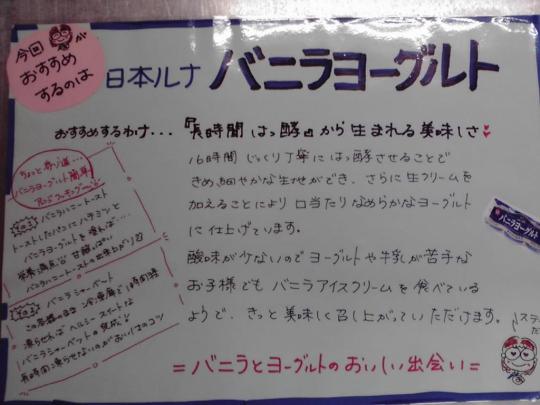 今回 が
おすすめ
するのは
日本ルナ バニラヨーグルト
おすすめするわけ・・・『長時間はっ酵』から生まれる美味しさ
16時間じっくり丁寧にはっ酵させることで
きめ細やかな生地ができ、さらに生クリームを
加えることにより口当たりなめらかなヨーグルト
に仕上げています。
酸味が少ないのでヨーグルトや牛乳が苦手な
お子様でもバニラアイスクリームを食べている
ようで、きっと美味しく召し上がっていただけます。
=バニラとヨーグルトのおいしい出会い=
ちょっと寄り道・・・
バニラヨーグルト簡単
その1 バニラハニートースト
トーストしたパンにハチミツと
バニラヨーグルトを塗れば・・・
バニラハニートーストの出来上がり
その2 バニラシャーベット
この容器のまま冷凍庫で1時間半
凍らせればヘルシースイーツな
バニラシャーベットの完成
長時間凍らせないのがおいしさのコツ
バニラヨーグルト